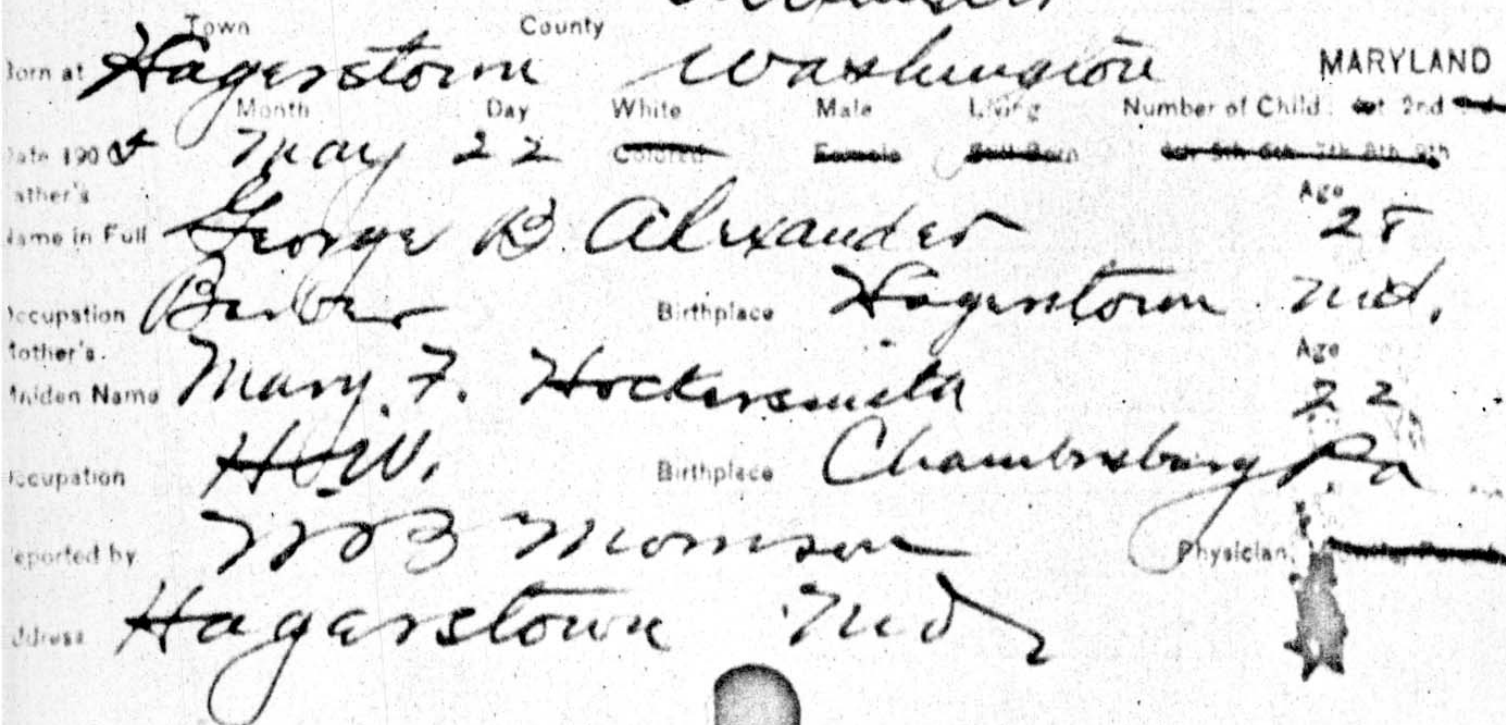 Town County
Born at Hagerstown Washington MARYLAND
Month Day White Male Living Number of Child 1st 2nd 3rd
Date 190 May 22 Colored Female Still Born 4th 5th 6th 7th 8th 9th
Father's Age
Name in Full George B. Alexander 28
Occupation Barber Birthplace Hagerstown Md.
Mother's Age
Maiden Name Mary. F. Hockersmith 22
Occupation H.W. Birthplace Chambersburg Pa
Reported by W B Morrison Physician,
Address Hagerstown Md